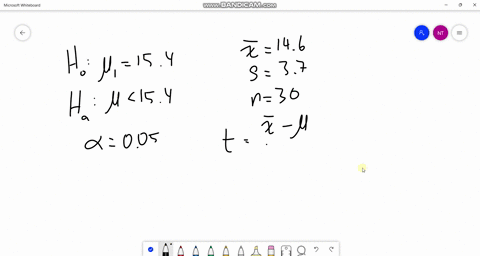 Microsoft Whiteboard
WWW.BANDICAM.COM
NT
H₀: μ₁ = 15.4
Hₐ: μ < 15.4
α = 0.05
x̄ = 14.6
s = 3.7
n = 30
t = x̄ - μ